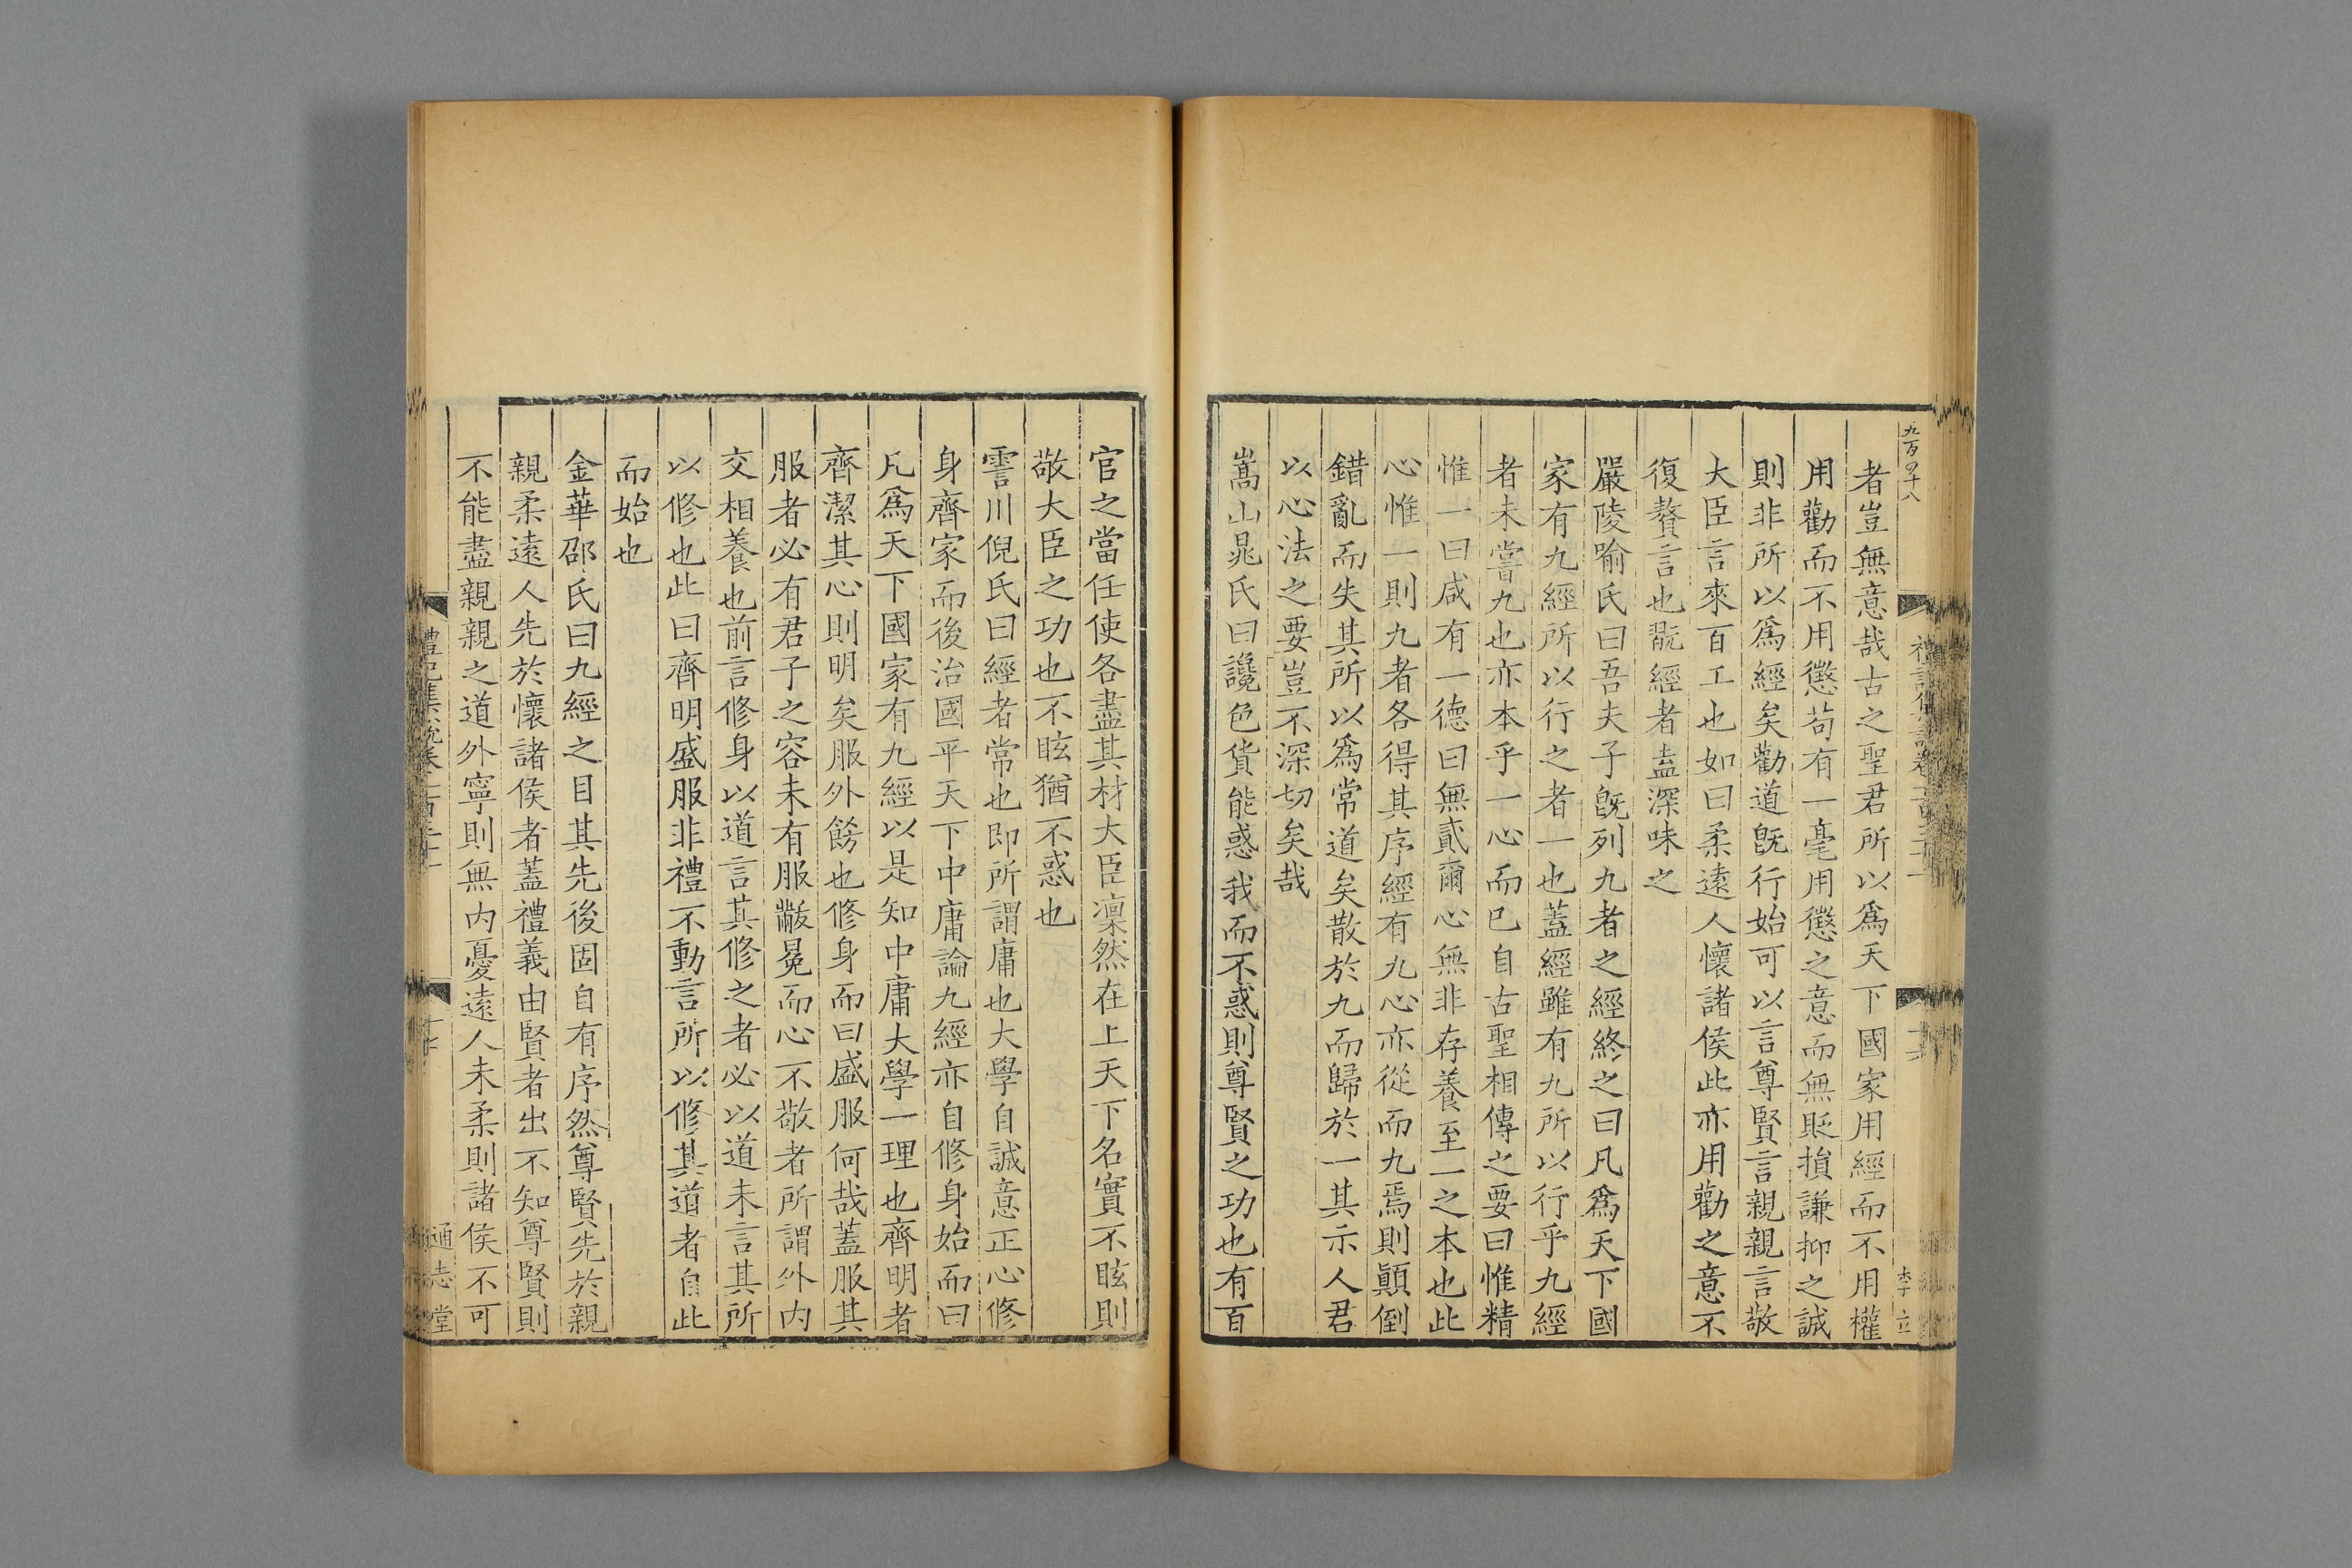 九百四十八
者豈無意哉古之聖君所以爲天下國家用經而不用權
用勸而不用懲苟有一毫用懲之意而無貶損謙抑之誠
則非所以爲經矣勸道旣行始可以言尊賢言親親言敬
大臣言來百工也如曰柔遠人懷諸侯此亦用勸之意不
復贅言也翫經者盍深味之
嚴陵喻氏曰吾夫子旣列九者之經終之曰凡爲天下國
家有九經所以行之者一也蓋經雖有九所以行乎九經
者未嘗九也亦本乎一心而已自古聖相傳之要曰惟精
惟一曰咸有一德曰無貳爾心無非存養至一之本也此
心惟一則九者各得其序經有九心亦從而九焉則顚倒
錯亂而失其所以爲常道矣散於九而歸於一其示人君
以心法之要豈不深切矣哉
嵩山晁氏曰讒色貨能惑我而不惑則尊賢之功也有百
李立
官之當任使各盡其材大臣凜然在上天下名實不眩則
敬大臣之功也不眩猶不惑也
霅川倪氏曰經者常也即所謂庸也大學自誠意正心修
身齊家而後治國平天下中庸論九經亦自修身始而曰
凡爲天下國家有九經以是知中庸大學一理也齊明者
齊潔其心則明矣服外餝也修身而曰盛服何哉蓋服其
服者必有君子之容未有服黻冕而心不敬者所謂外内
交相養也前言修身以道言其修之者必以道未言其所
以修也此曰齊明盛服非禮不動言所以修其道者自此
而始也
金華邵氏曰九經之目其先後固自有序然尊賢先於親
親柔遠人先於懷諸侯者蓋禮義由賢者出不知尊賢則
不能盡親親之道外寧則無内憂遠人未柔則諸侯不可
禮記集說卷
通志堂